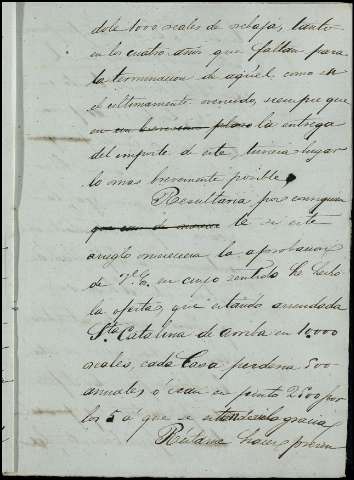 dole 1000 reales de rebaja, tanto
en los cuatro años que faltan para
la terminacion de aquel, como en
el ultimamente vencido, siempre que
en un brevísimo plazo la entrega
del importe de este, tuviera lugar
lo mas brevemente posible.
Resultaria, por consiguien
que con de manera te si este
arreglo mereciera la aprobacion
de V.E. en cuyo sentido he hecho
la oferta, que estando arrendada
Sta. Catalina de arriba en 10,000
reales, cada Casa perdona 500
anuales, ó sean en junto 2500 por
los 5 á que se estendiera la gracia
Réstame hacer presen